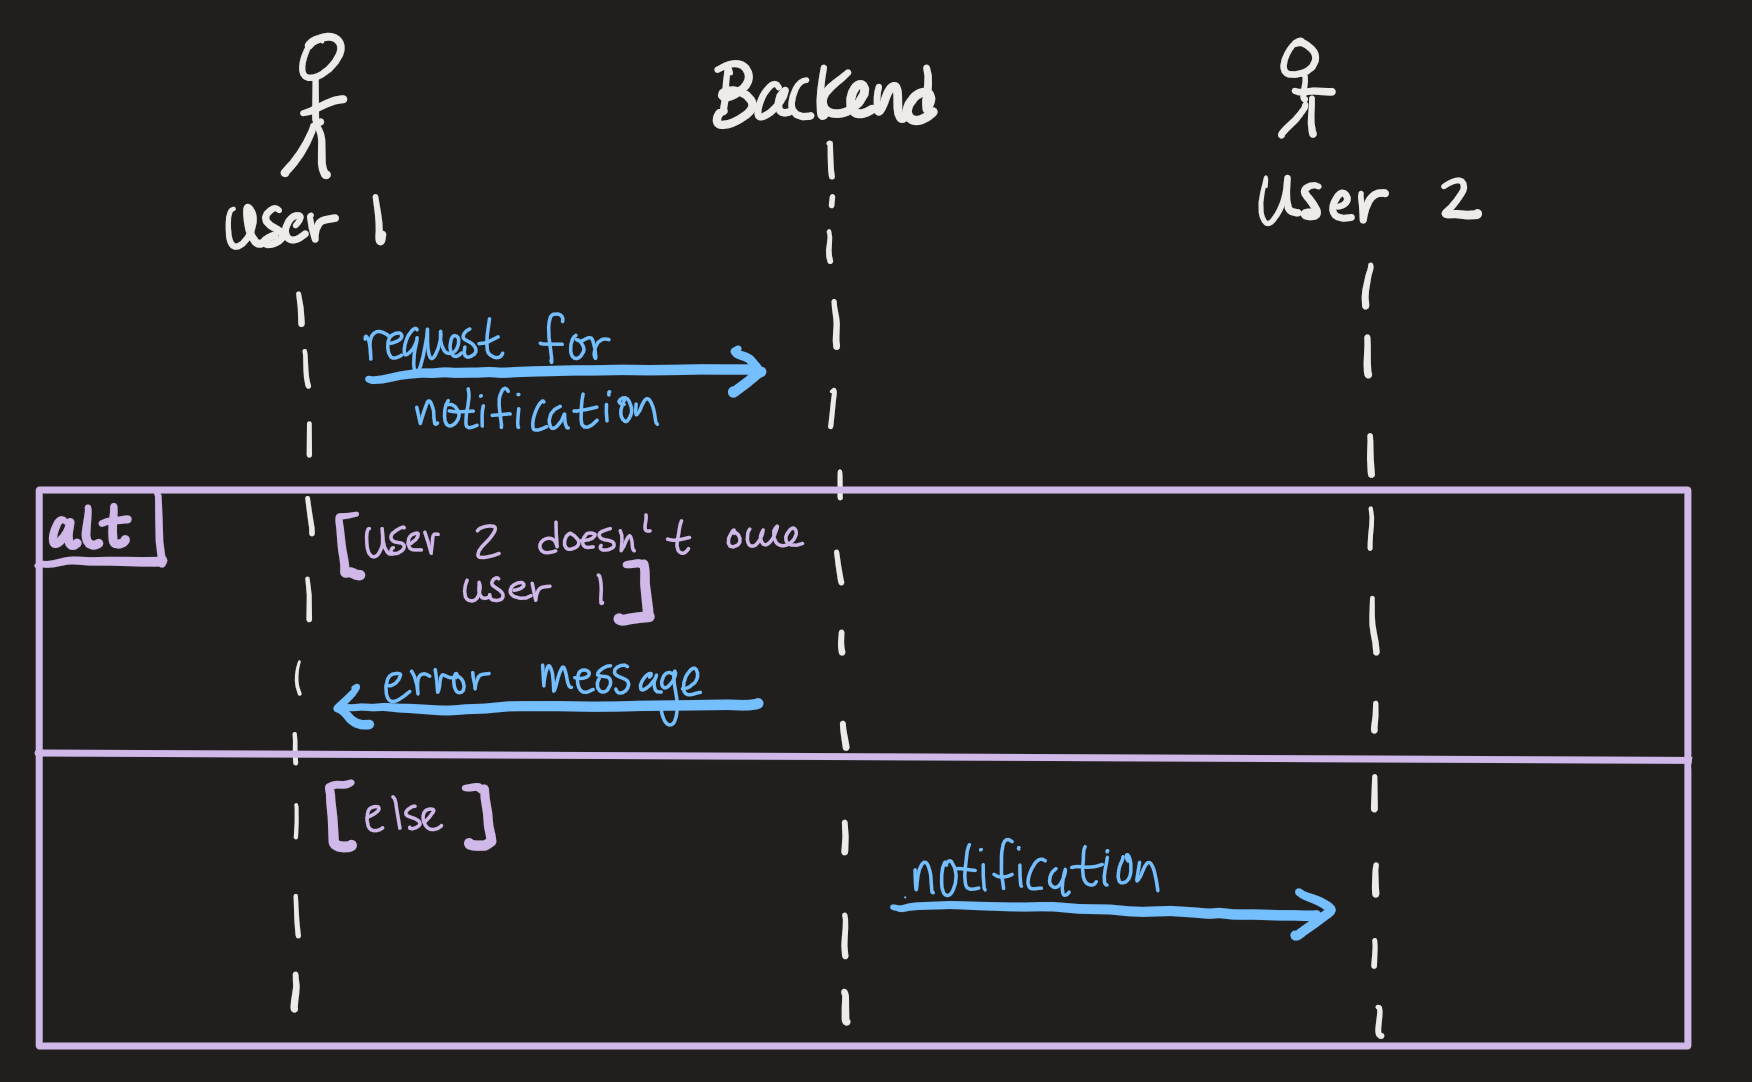 Backend
User 1
User 2
request for
notification
alt
[User 2 doesn't owe
user 1]
error message
[else]
notification